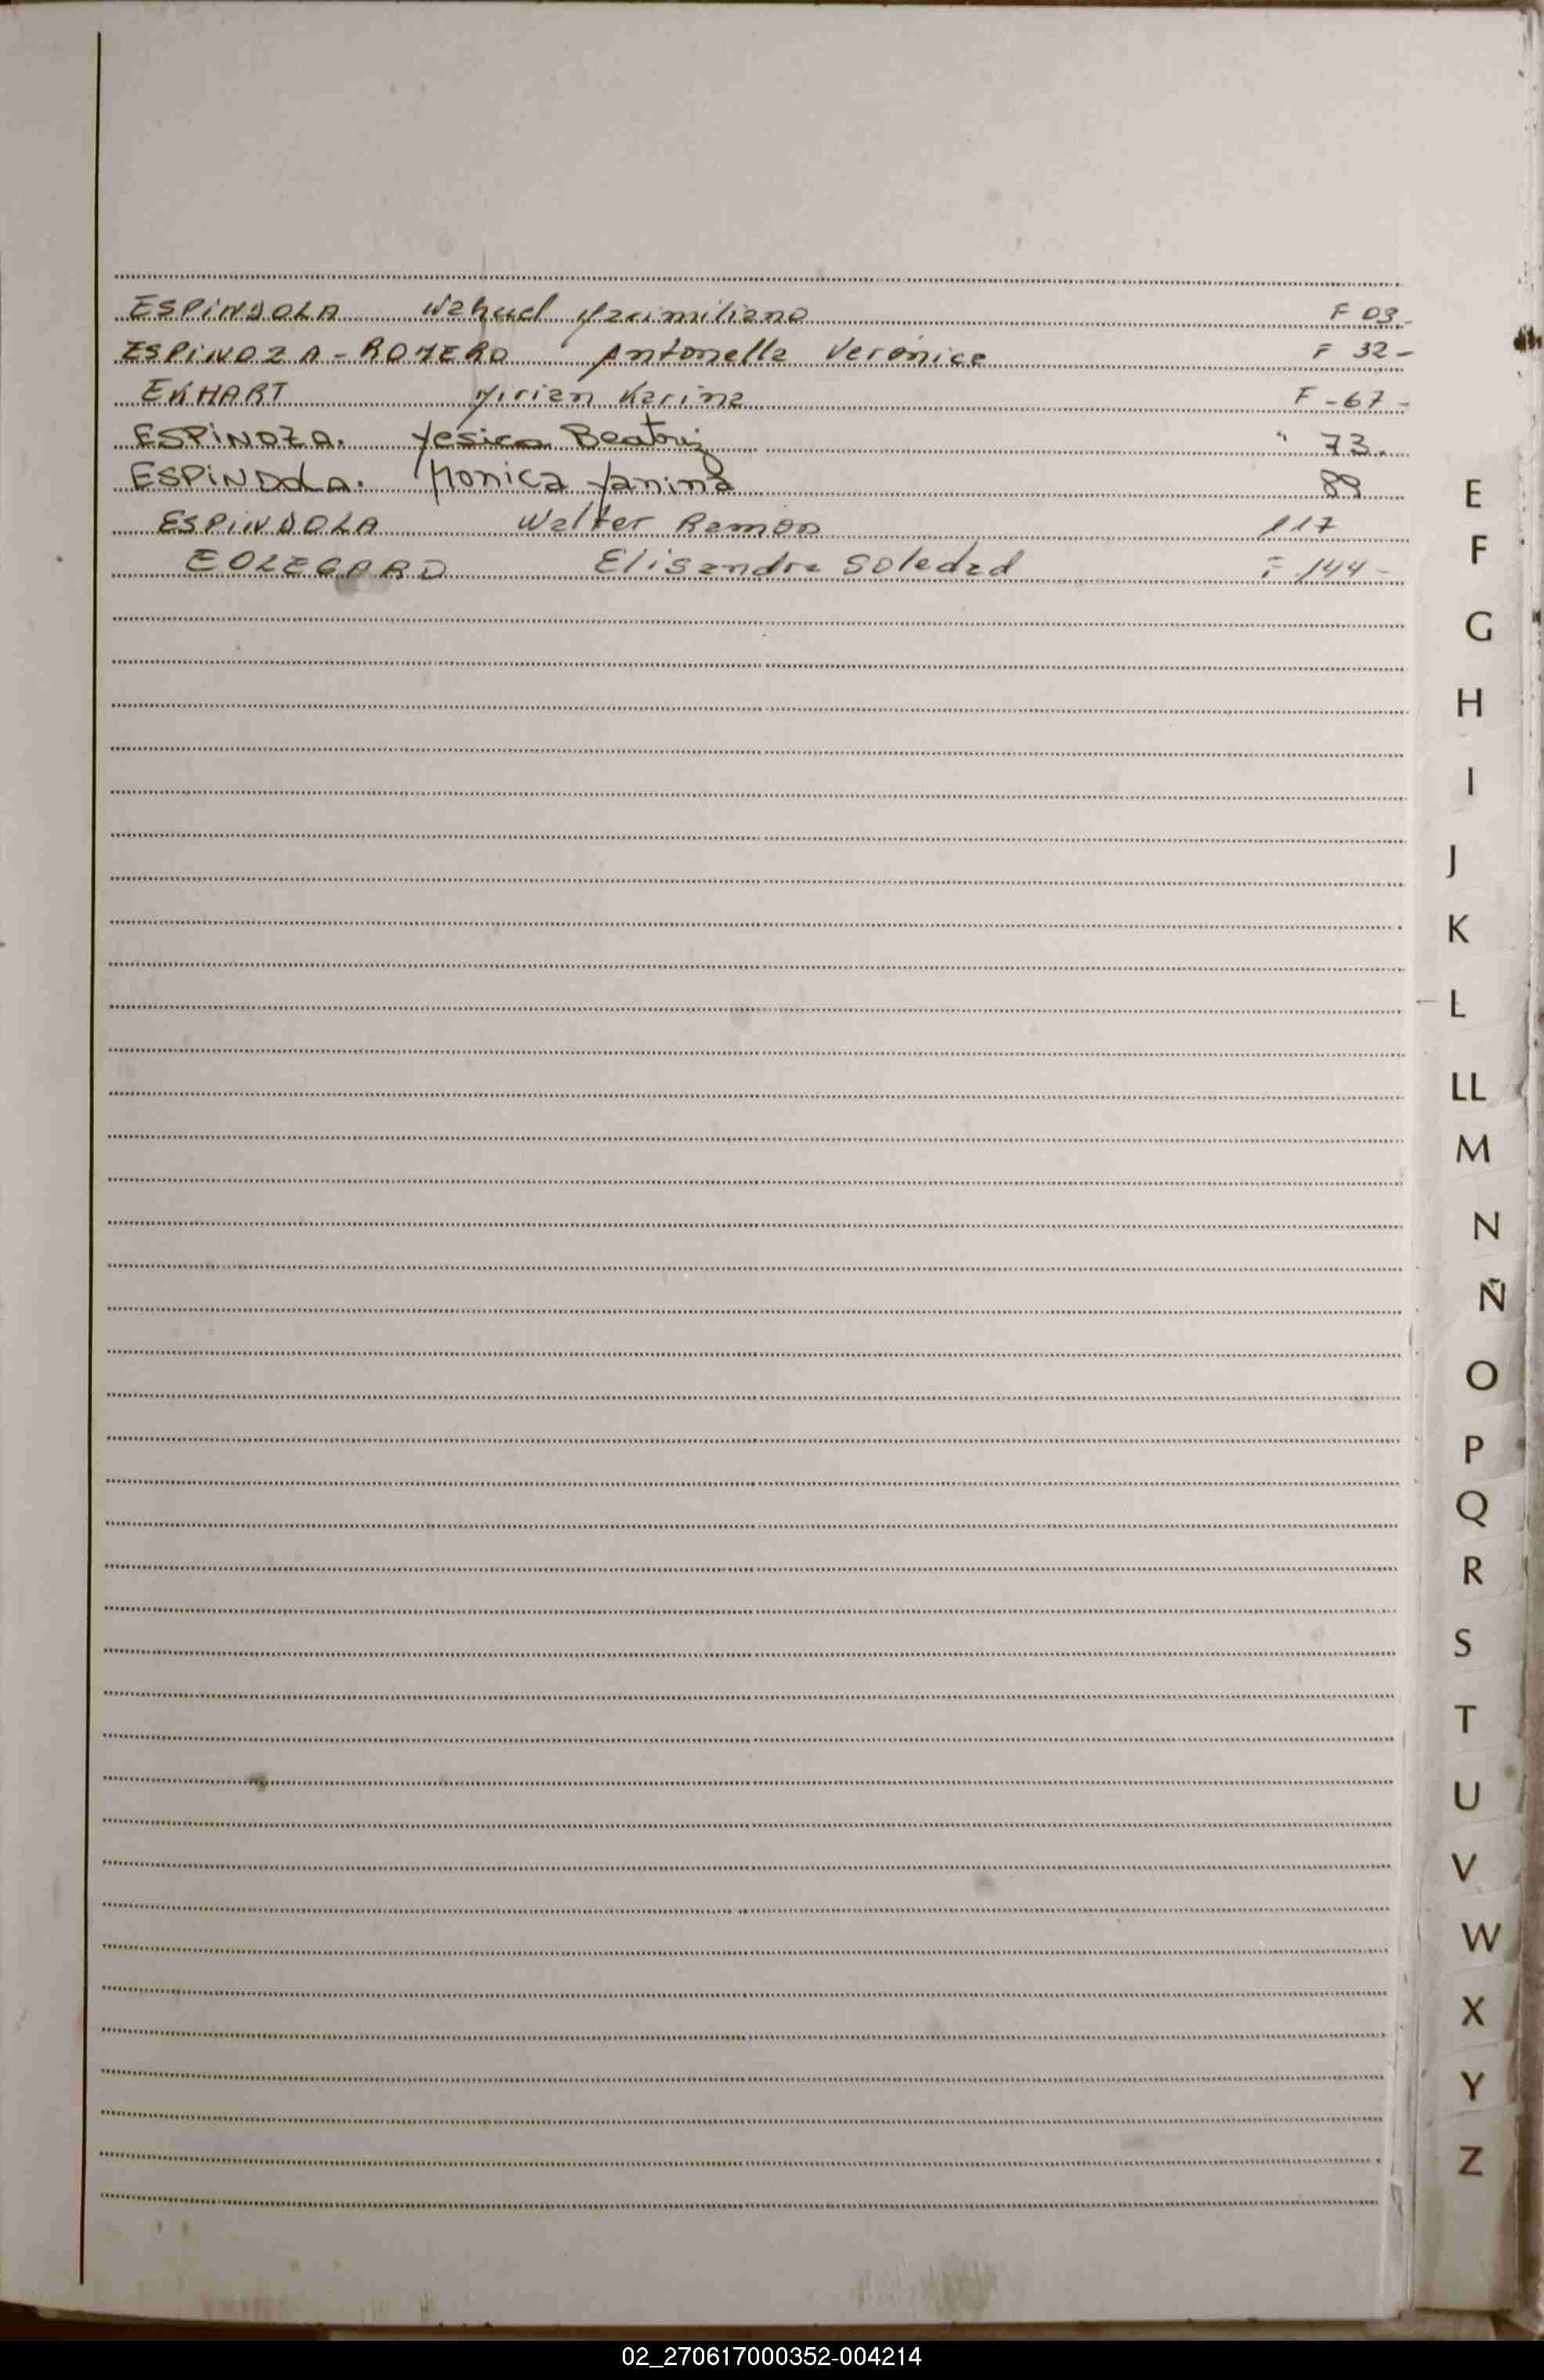 ESPINDOLA Nahuel Maximiliano F 03-
ESPINOZA-ROMERO Antonella Veronica F 32-
EKHART Mirian Karina F-67-
ESPINOZA. Yesica Beatriz " 73.
ESPINDOLA. Monica Yanina 89
ESPINDOLA Walter Ramon 117
EOLEGARD Elisandra Soledad F 144-
E
F
G
H
I
J
K
L
LL
M
N
Ñ
O
P
Q
R
S
T
U
V
W
X
Y
Z
02_270617000352-004214